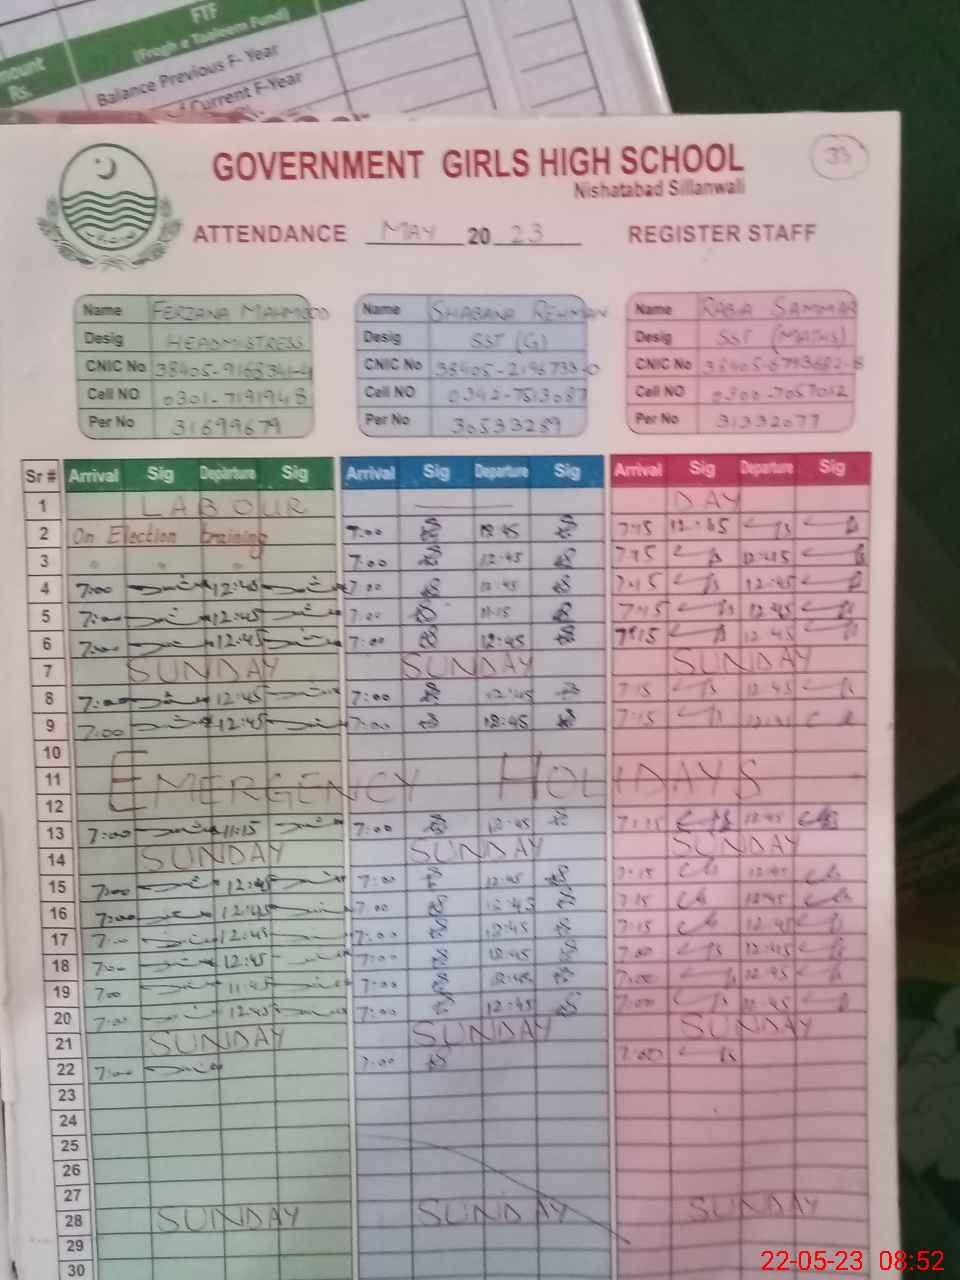 FTF
(Frogh e Taaleem Fund)
mount
Rs.
Balance Previous F- Year
Current F-Year
GOVERNMENT GIRLS HIGH SCHOOL
33
Nishatabad Sillanwali
ATTENDANCE MAY 2023 REGISTER STAFF
Name FERZANA MAHMOOD Name SHABANA REHMAN Name RABIA SAMMAR
Desig HEADMISTRESS Desig SST (G) Desig SST (MATHS)
CNIC No CNIC No CNIC No
Cell NO Cell NO Cell NO
Per No 31699679 Per No 30533289 Per No 31332077
Sr # Arrival Sig Departure Sig Arrival Sig Departure Sig Arrival Sig Departure Sig
1 LABOUR DAY
2 On Election training 7:00 12:45 7:15 12:45
3 " " " 7:00 12:45 7:15 12:45
4 7:00 12:45 7:00 12:45 7:15 12:45
5 7:00 12:45 7:00 11:15 7:15 12:45
6 7:00 12:45 7:00 12:45 7:15 12:45
7 SUNDAY SUNDAY SUNDAY
8 7:00 12:45 7:00 12:45 7:15 12:45
9 7:00 12:45 7:00 12:45 7:15
10
11 EMERGENCY HOLIDAYS
12
13 7:00 11:15 7:00 12:45 7:15 12:45
14 SUNDAY SUNDAY SUNDAY
15 7:00 12:45 7:00 12:45 7:15 12:45
16 7:00 12:45 7:00 12:45 7:15 12:45
17 7:00 12:45 7:00 12:45 7:15 12:45
18 7:00 12:45 7:00 12:45 7:00 12:45
19 7:00 11:45 7:00 12:45 7:00 12:45
20 7:00 12:45 7:00 12:45 7:00 12:45
21 SUNDAY SUNDAY SUNDAY
22 7:00 7:00 7:00
23
24
25
26
27
28 SUNDAY SUNDAY SUNDAY
29
30
22-05-23 08:52